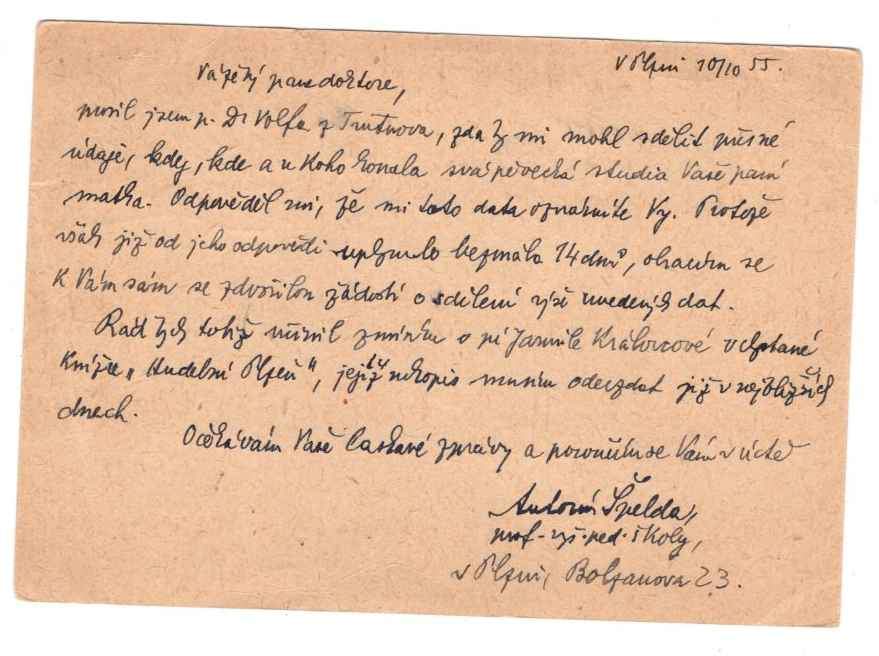 V Plzni 10/10 55.
Vážený pane doktore,
prosil jsem p. Dr Volfa z Trutnova, zda by mi mohl sdělit přesné
údaje, kdy, kde a u koho konala svá pěvecká studia Vaše paní
matka. Odpověděl mi, že mi tato data oznámíte Vy. Protože
však již od jeho odpovědi uplynulo bezmála 14 dnů, obracím se
k Vám sám se zdvořilou žádostí o sdělení výše uvedených dat.
Rád bych totiž učinil zmínku o pí Jarmile Královcové v chystané
knížce „Hudební Plzeň", jejíž rukopis musím odevzdat již v nejbližších
dnech.
Očekávám Vaše laskavé zprávy a poroučím se Vám v úctě
Antonín Špelda,
prof. vyš. ped. školy,
v Plzni, Bolzanova 23.